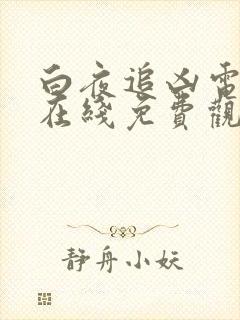 白夜追凶電
在綫免費觀
静舟小妖